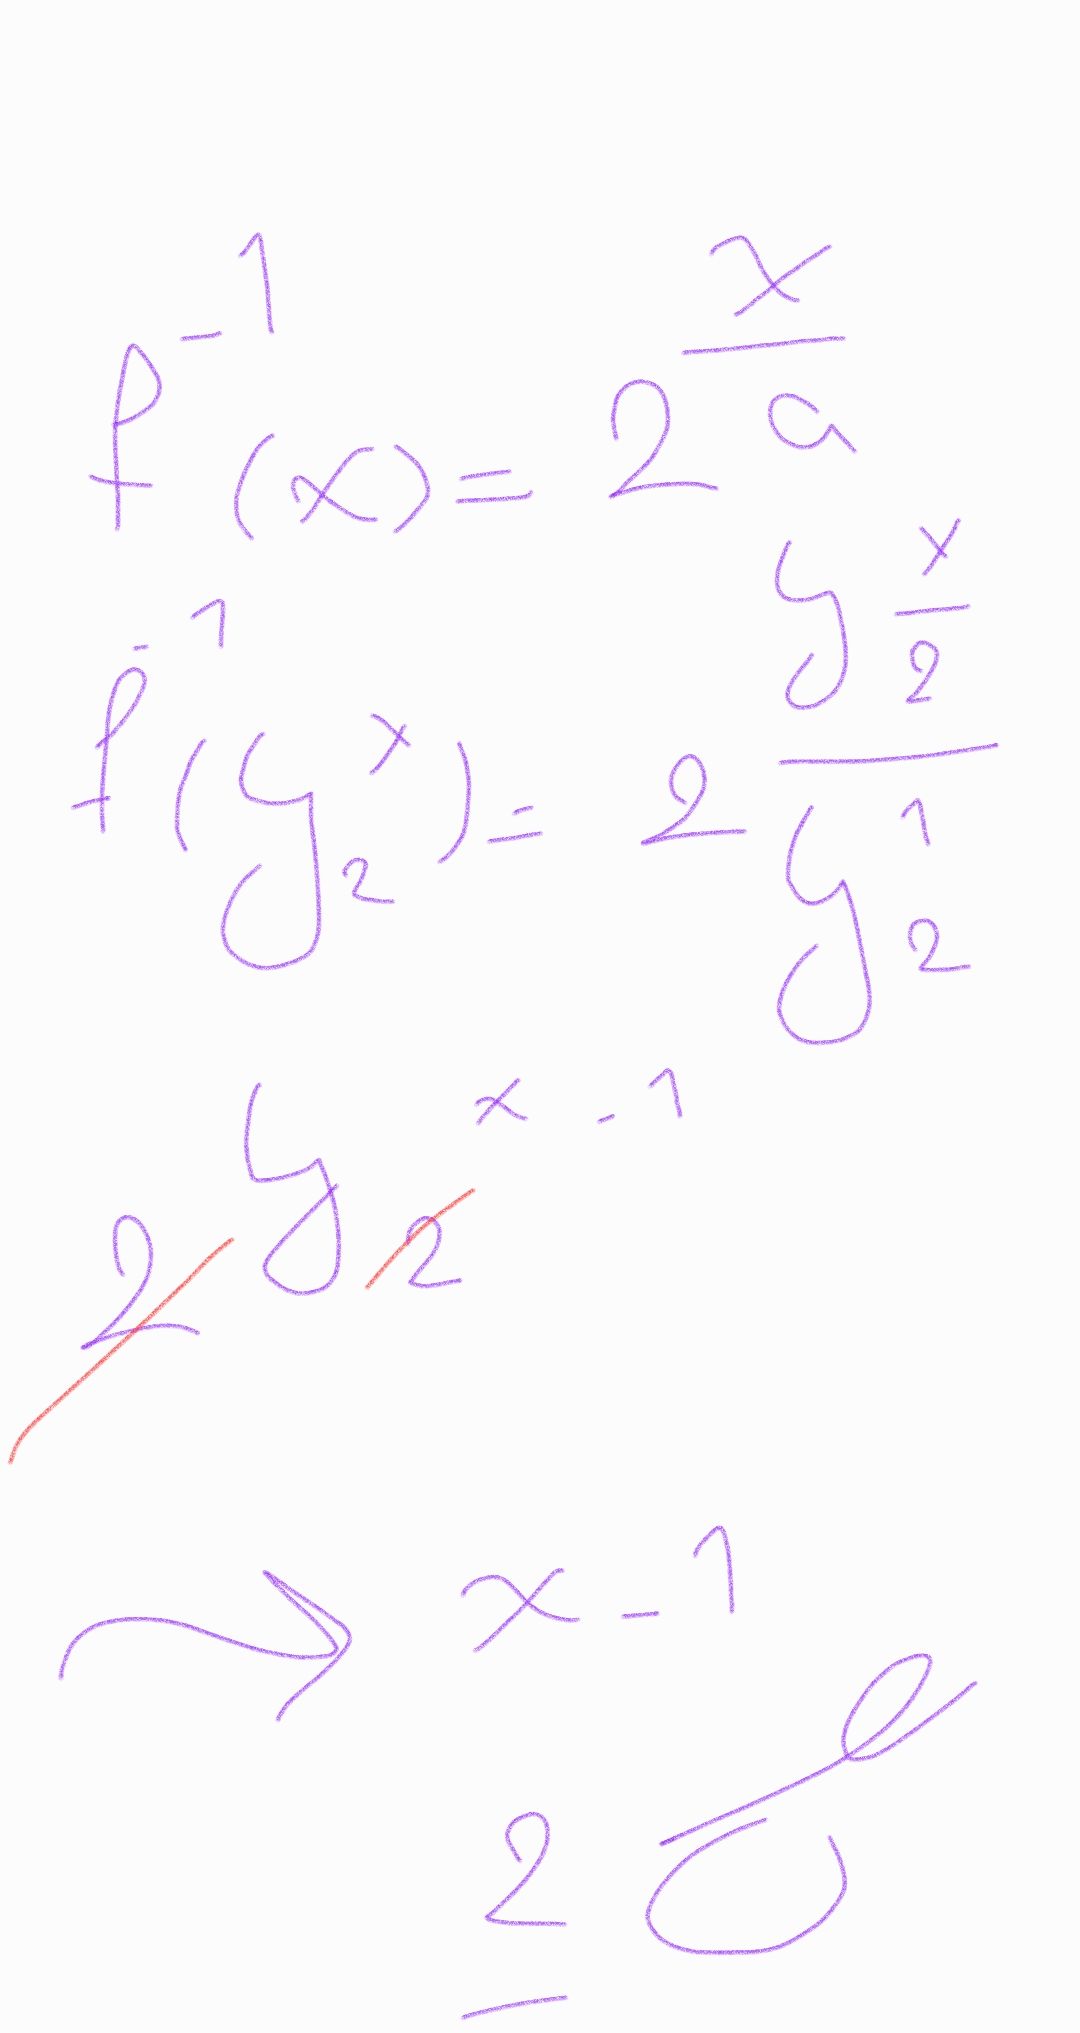 f⁻¹(x) = 2^(x/a)
f⁻¹(y₂ˣ) = 2^(y^(x/2) / y₂¹)
2 y₂ˣ⁻¹
x - 1
2